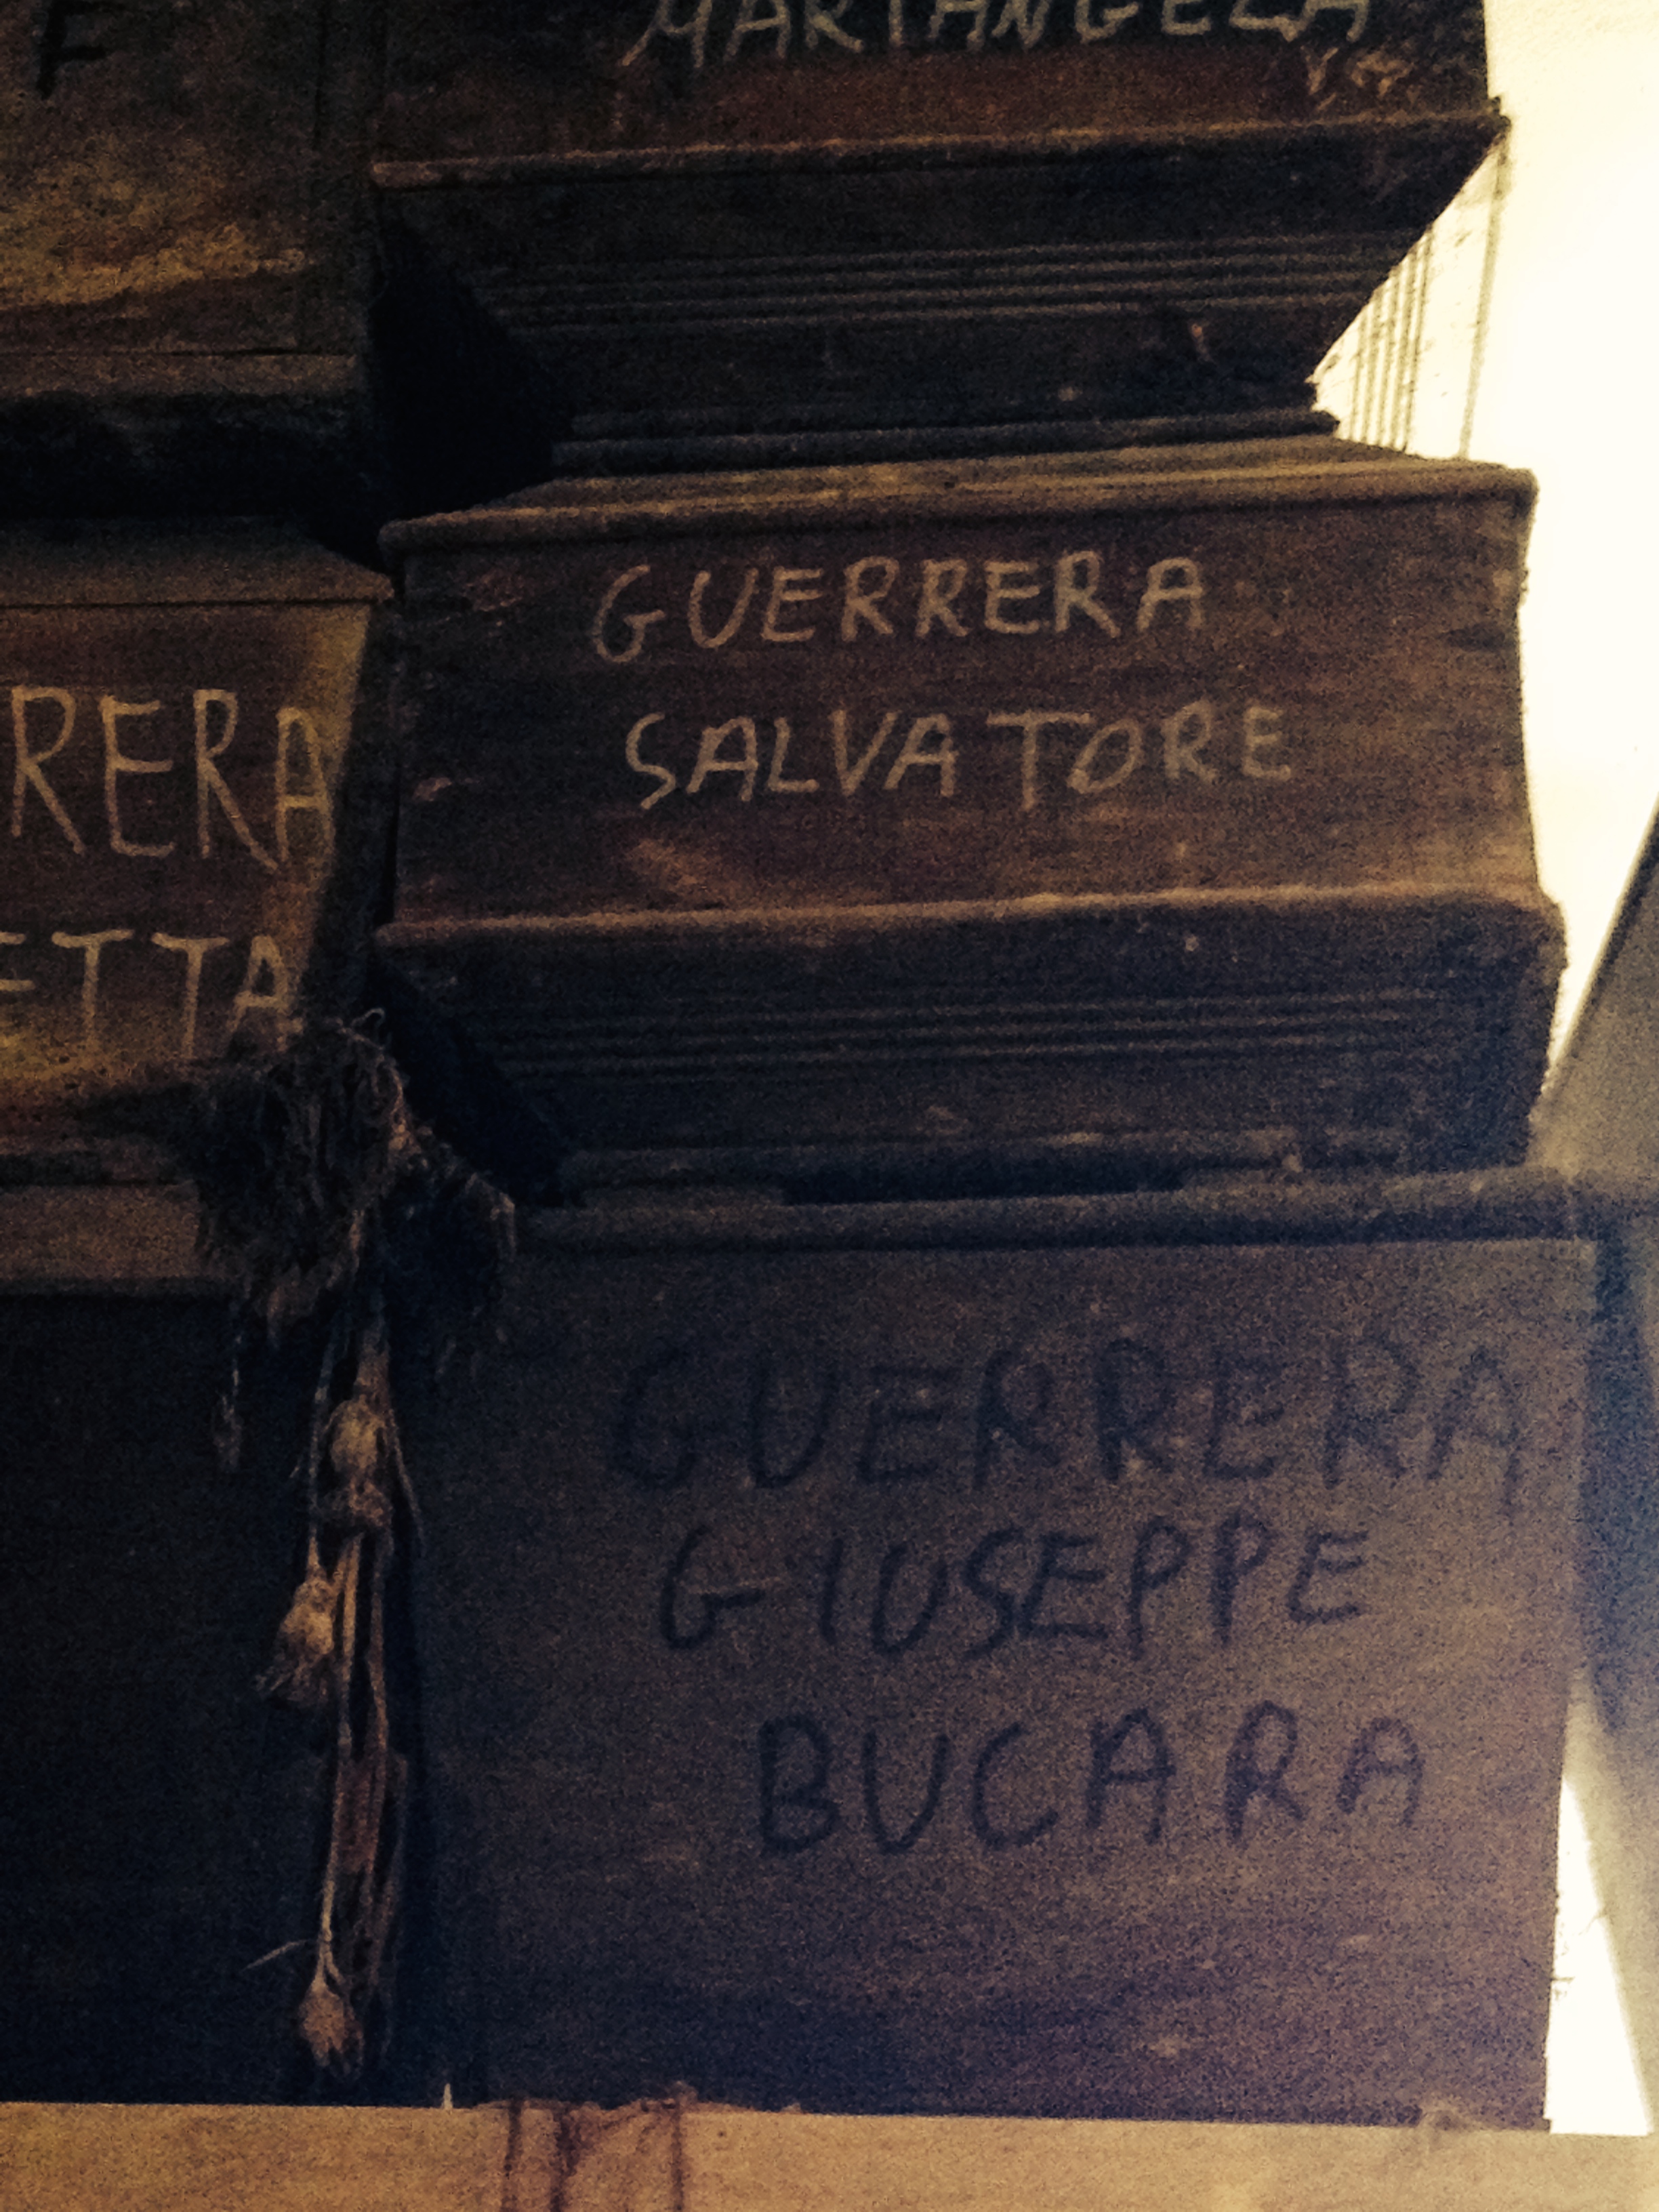 F
MARIANGELA
GUERRERA
SALVATORE
RERA
ETTA
GUERRERA
GIUSEPPE
BUCARA